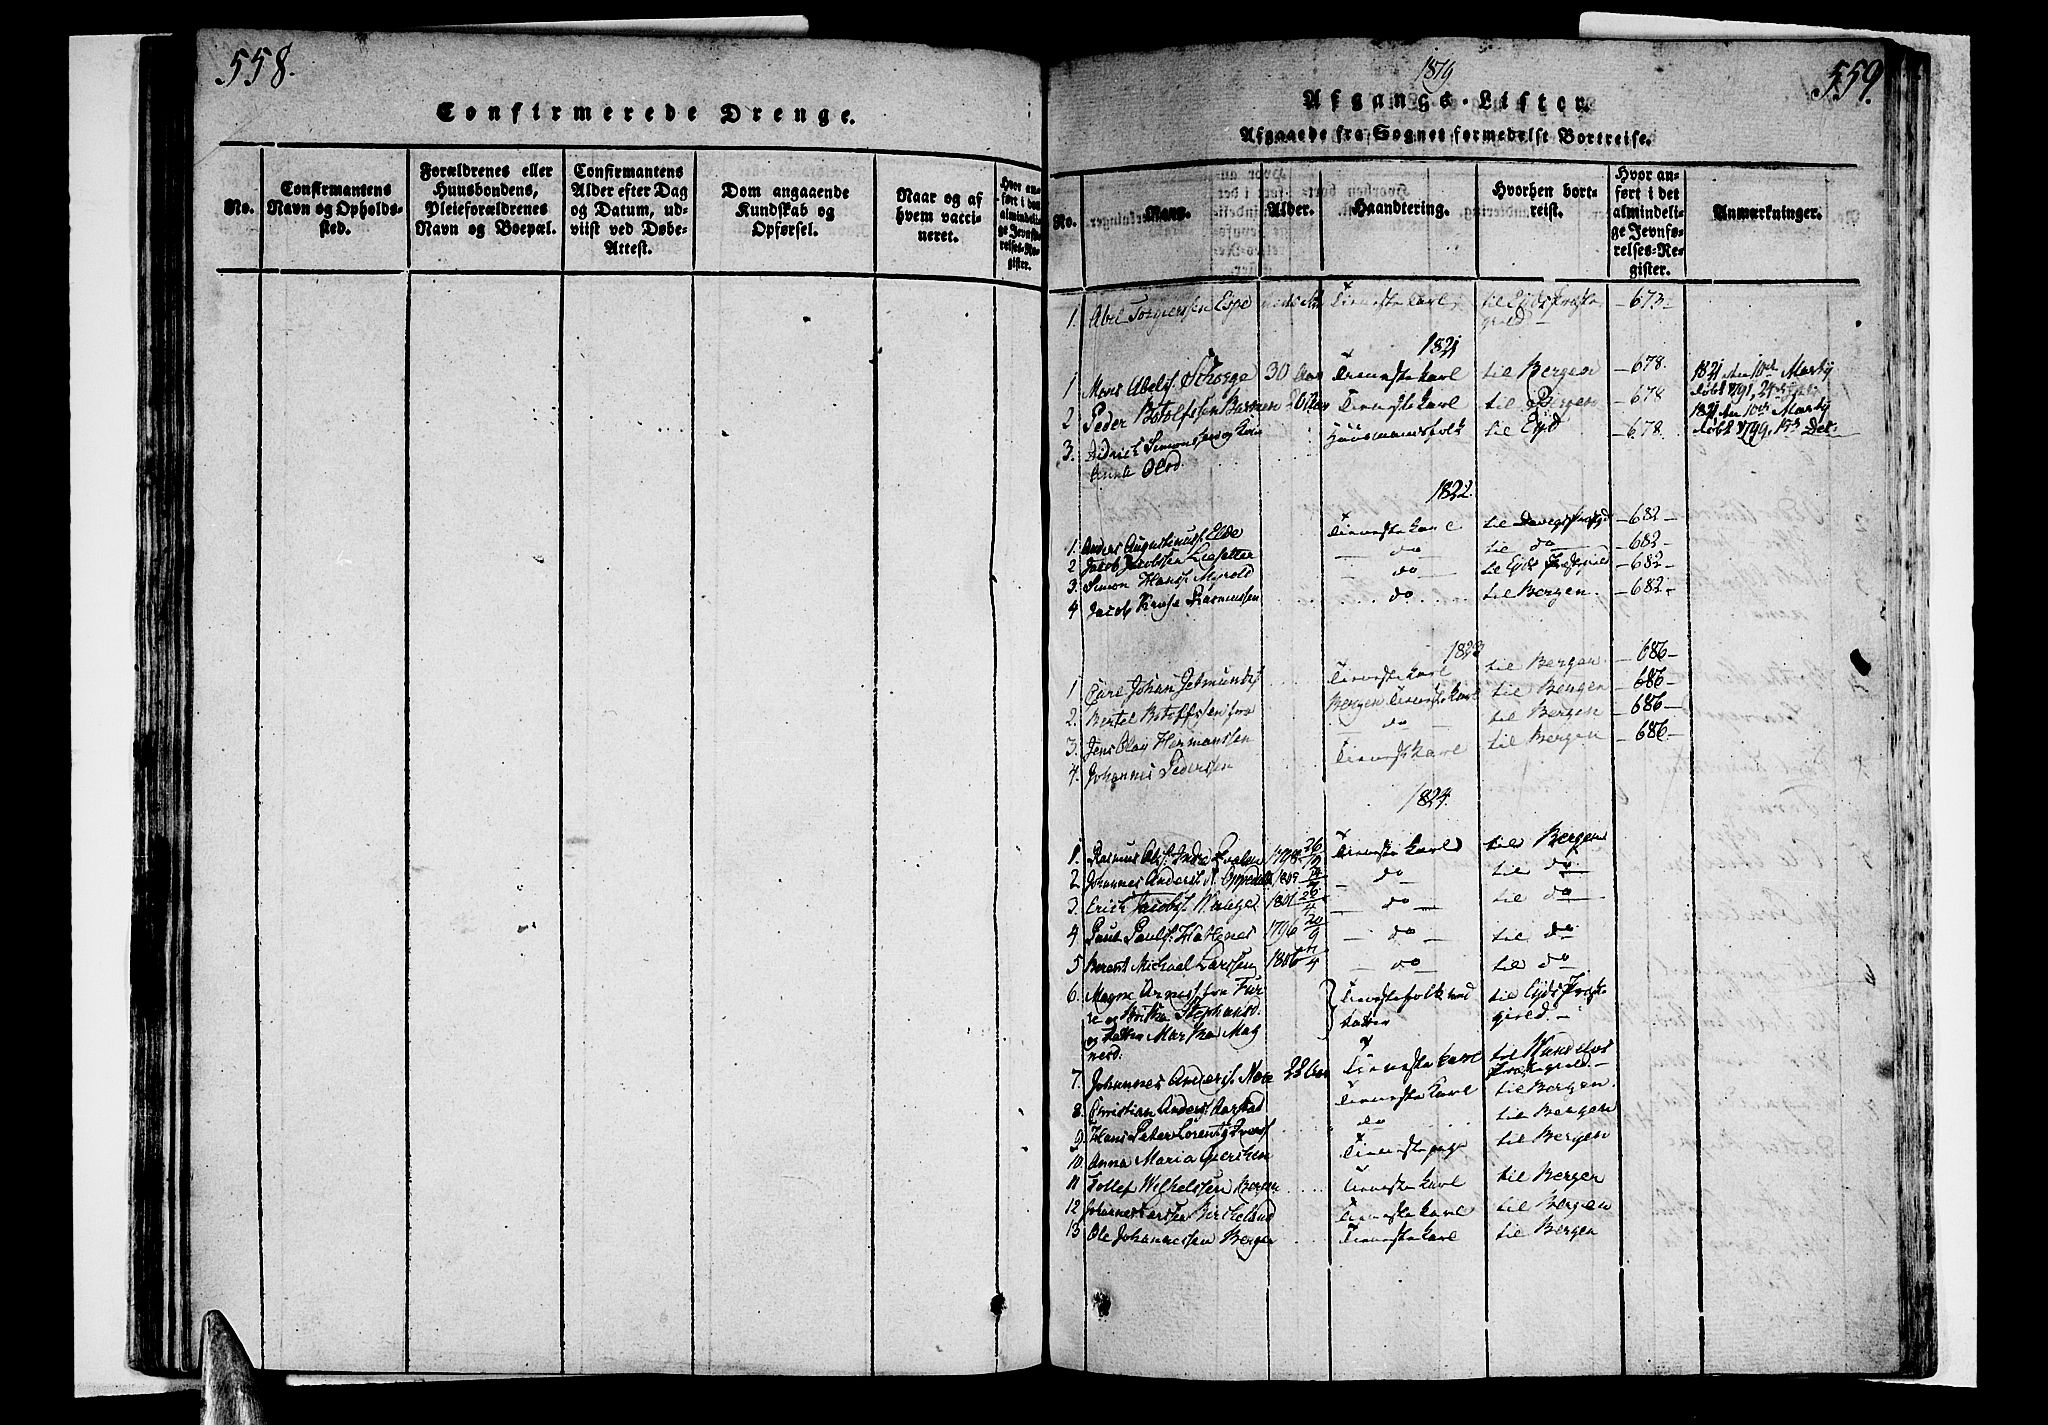 558.
Confirmerede Drenge.
No.
Confirmantens Navn og Opholds-sted.
Forældrenes eller Huusbondens, Pleieforældrenes Navn og Boepæl.
Confirmantens Alder efter Dag og Datum, ud-viist ved Døbe-Attest.
Dom angaaende Kundskab og Opførsel.
Naar og af hvem vacci-neret.
Hvor an-ført i det almindeli-ge Jevnfø-relses-Re-gister.
1819
559.
Afgangs-Lister.
Afgaaede fra Sognet formedelst Bortreise.
No.
Navn.
Alder.
Haandtering.
Hvorhen bort-reist.
Hvor an-ført i det almindeli-ge Jevnfø-relses-Re-gister.
Anmærkninger.
1. Abel Torgierssen Espe Tieneste karl til Eyds Præste - 673 -
gield -
1821
1 Mons Abels. Skorge 30 Aar Tieneste karl til Bergen - 678. 1821 den 10de Martij
døbt 1791, 24
2 Peder Botolfssen Berrnen Tieneste karl til Bergen - 678 1821 den 10de Martij
døbt 1799, Det
3. Didrich Simonssen og Kone Huusmandsfolk til Eyd - 678.
Anne Olsd.
1822.
1. Anders Augustinus. Elde Tieneste karl til - 682 -
2 Jacob Jacobssen Liesetter do til do - 682 -
3. Simon Hans. Myrold do til Eyds Præstegield - 682 -
4 Jacob Rasmussen do til Bergen. - 682 -
1823
1 Carl Johan Jetmunds. Tieneste karl til Bergen. - 686 -
2. Bertel Botolfssen fra Bergen Tieneste karl til Bergen - 686 -
3. Jens Olay Hermanssen do til Bergen - 686 -
4. Johannes Pederssen Tieneste karl til Bergen - 686 -
1824.
1. Rasmus Ols. Indre 1798 26/9 Tieneste karl til Bergen
2 Johannes Anders. 1809 do til do
3. Erich Jacobs. 1801 26/4 do til do
4 Paul Pauls. 1796 20/9 do til do
5 Berent Michael Larssen 1806 do til do
6. Magne Arnes. fra Fur- Tienestefolk med til Eyds Præste-
re og Brithe Stephansd. datter gield. -
og datter Martha Mag
nesd:
7. Johannes Anders. Nore 28 Aar Tieneste karl til
Præstegield. -
8. Christian Anders. Aarstad Tieneste Karl til Bergen.
9 Hans Peter Lorents do til Bergen
10 Anna Maria Tieneste pige til Bergen
11 Tollef Wilhelssen Tieneste karl til Bergen
12 Johannes Larssen Birkeland Tieneste karl til Bergen
13 Ole Johannessen Berge Tieneste karl til Bergen